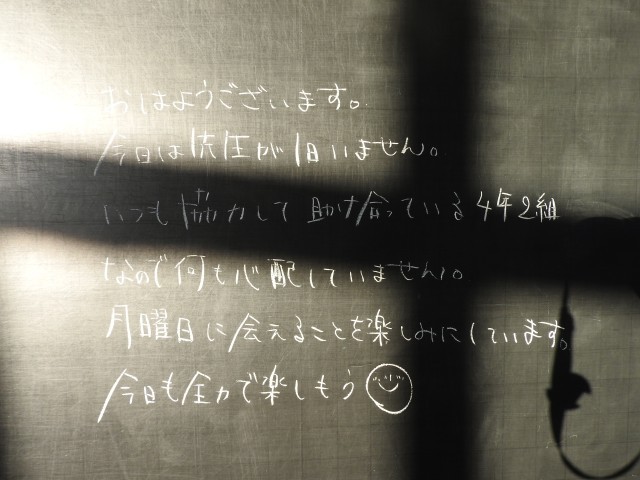 おはようございます。
今日は先生が1日いません。
いつも協力して助け合っている4年2組
なので何も心配していません。
月曜日に会えることを楽しみにしています。
今日も全力で楽しもう